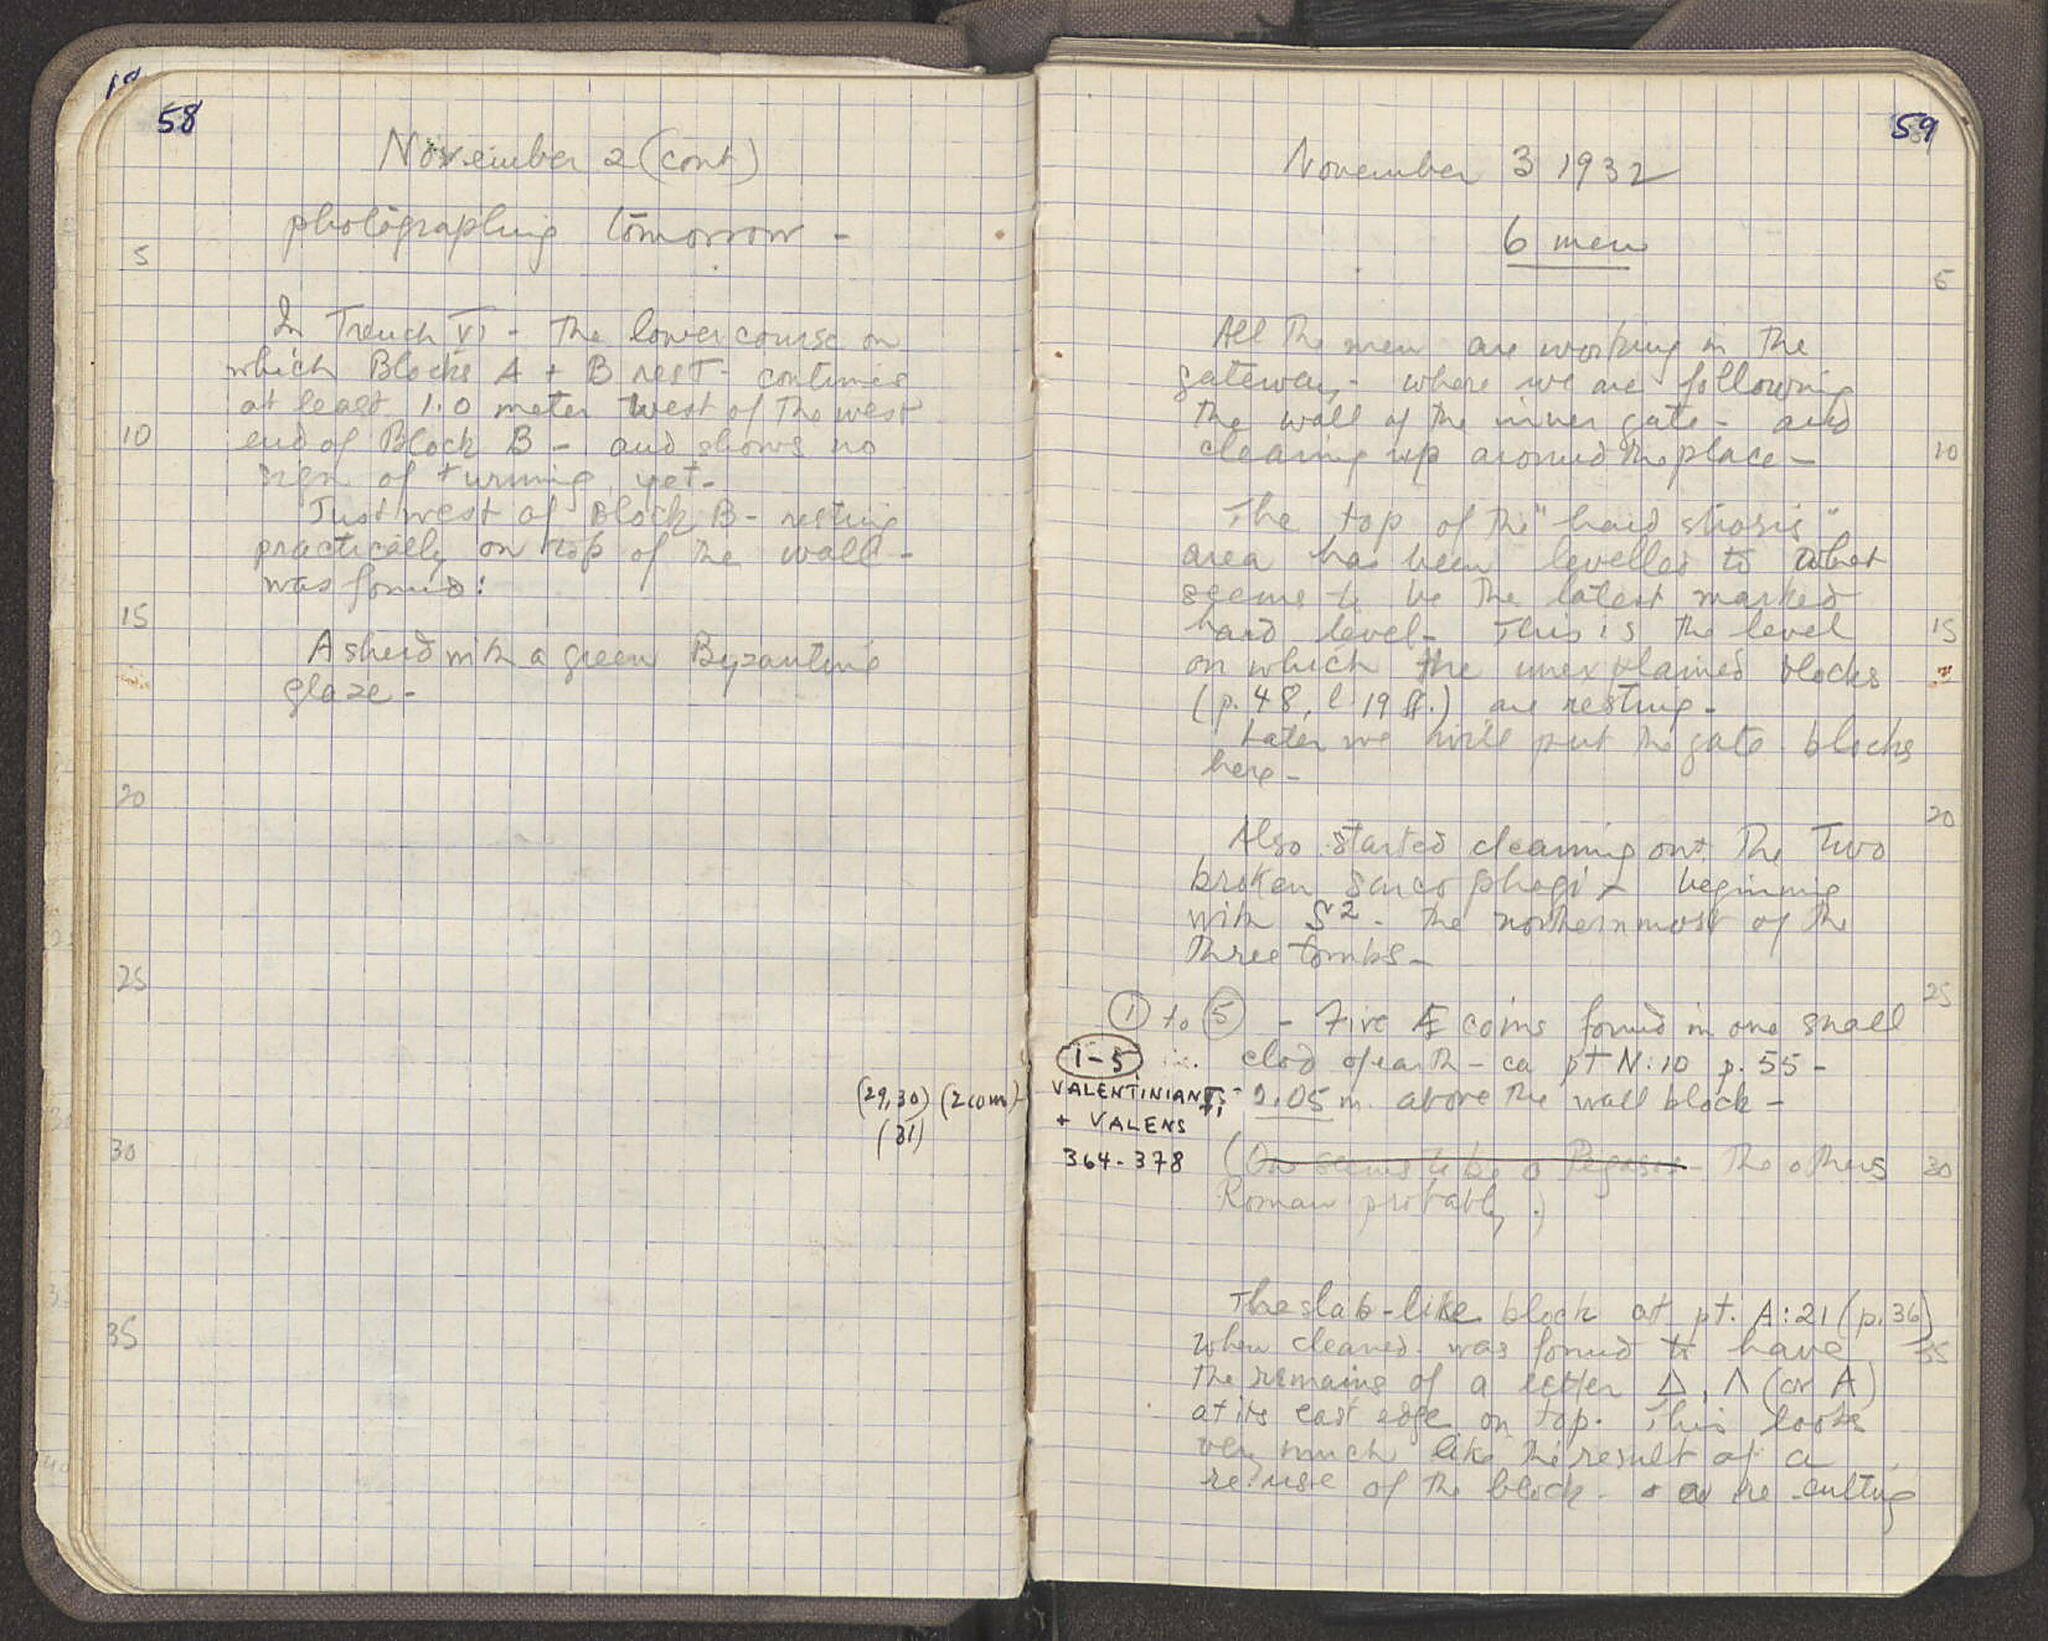 58
November 2 (cont)
photographing tomorrow -
5
In Trench VI - The lower course on
which Blocks A + B rest - continues
at least 1.0 meter west of the west
10
end of Block B - and shows no
sign of turning yet -
Just west of Block B - resting
practically on top of the wall -
was found:
15
A sherd with a green Byzantine
glaze -
20
25
(29,30) (2 com)
(31)
30
35
59
November 3 1932
6 men
5
All the men are working in the
gateway - where we are following
the wall of the inner gate - and
cleaning up around the place -
10
The top of the "hard stosis"
area has been levelled to what
seems to be the latest marked
hard level - This is the level
15
on which the unexplained blocks
(p. 48, l. 19 ff.) are resting -
Later we will put the gate blocks
here -
20
Also started cleaning out the two
broken sarcophagi - beginning
with S2 - the northernmost of the
three tombs -
25
1 to 5 - Five Æ coins found in one small
1-5 clod of earth - ca pt N:10 p. 55 -
VALENTINIAN I 2.05 m. above the wall block -
+ VALENS
364-378 (One seems to be a Pegasos - The others
30
Roman probably.)
The slab-like block at pt. A:21 (p. 36)
when cleaned was found to have
35
the remains of a letter Δ, Λ (or A)
at its east edge on top. This looks
very much like the result of a
re-use of the block - + a re-cutting